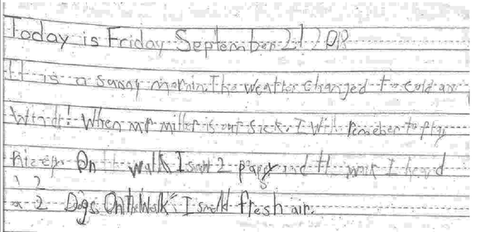 Today is Friday September 21
It is a sunny mornin. The Weather changed to cold an
Windy! When mr miller is out sick. I will remeber to play
On the walk I saw 2 and the walk I heard
2 Dogs On the Walk I smelld fresh air.